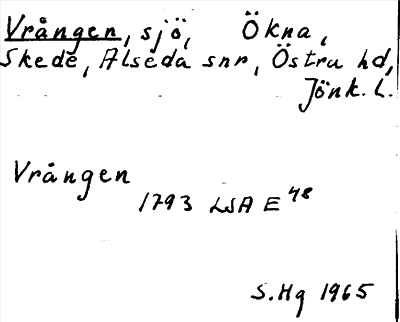 Vrången, sjö, Ökna,
Skede, Alseda snr, Östra hd,
Jönk. L.
Vrången
1793 LSA E 48
S.Hg 1965